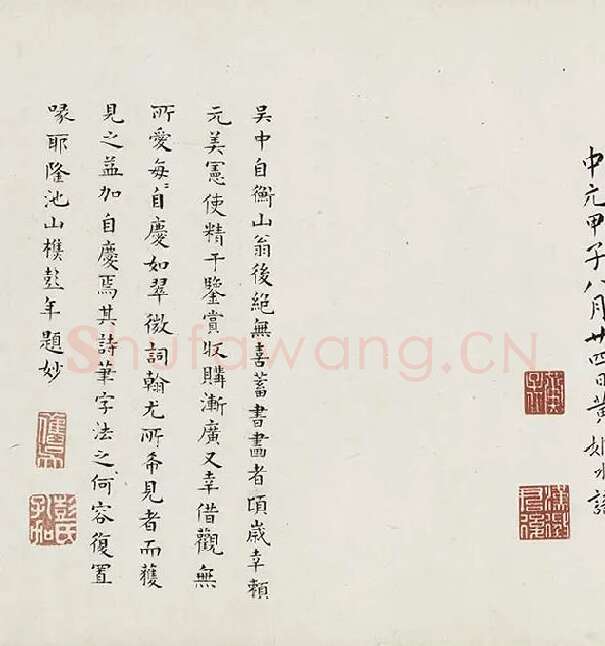 中元甲子八月廿四日黄姬水識
吳中自衡山翁後絕無喜蓄書畫者頃歲幸賴
元美憲使精于鑒賞收購漸廣又幸借觀無
所愛每〻自慶如翠微詞翰尤所希見者而獲
見之益加自慶焉其詩筆字法之何容復置
喙耶隆池山樵彭年題妙
彭氏孔加
Shufawang.CN